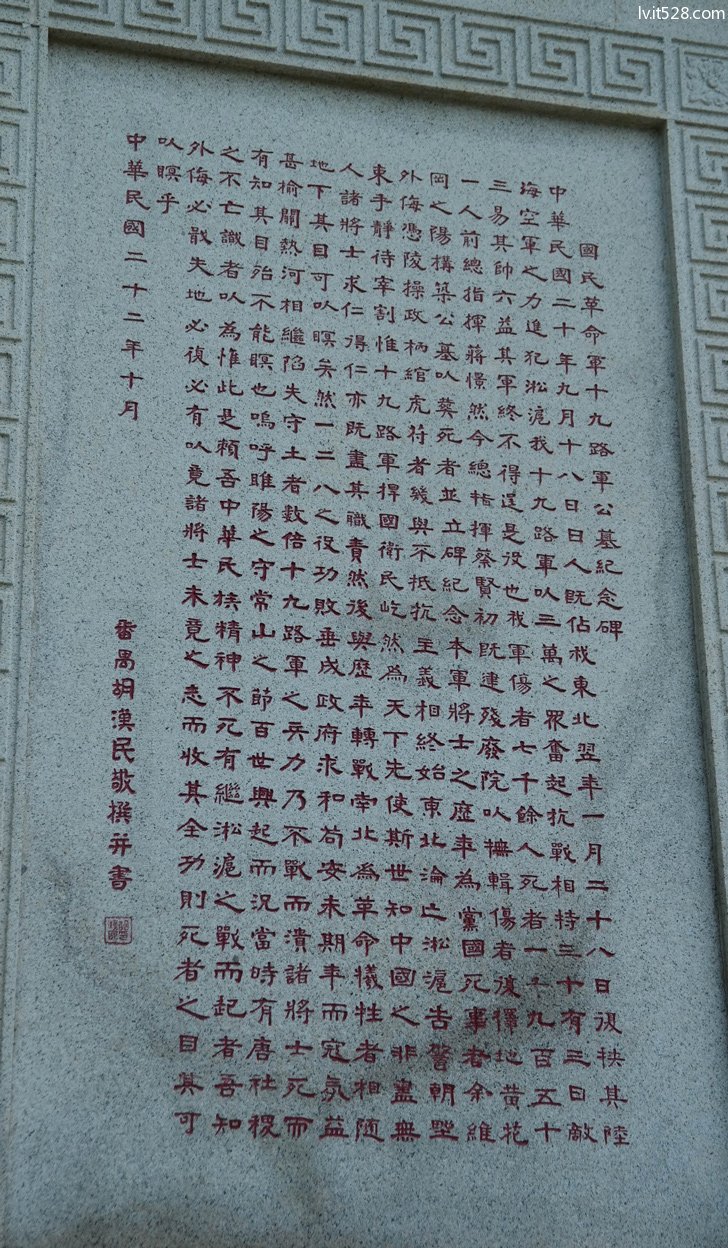 lvit528.com
國民革命軍十九路軍公墓紀念碑
中華民國二十年九月十八日日人既佔我東北翌年一月二十八日復挾其陸
海空軍之力進犯淞滬我十九路軍以三萬之眾奮起抗戰相持三十有三日敵
三易其帥六益其軍終不得逞是役也我軍傷者七千餘人死者一千九百五十
一人前總指揮蔣憬然今總指揮蔡賢初既建殘廢院以撫輯傷者復擇地黃花
岡之陽構築公墓以葬死者並立碑紀念本軍將士之歷年為黨國死事者余維
外侮憑陵操政柄綰虎符者幾與不抵抗主義相終始東北淪亡淞滬告警朝野
束手靜待宰割惟十九路軍捍國衛民屹然為天下先使斯世知中國之非盡無
人諸將士求仁得仁亦既盡其職責然後與歷年轉戰南北為革命犧牲者相隨
地下其目可以瞑矣然一二八之役功敗垂成政府求和苟安未期年而寇氛益
甚榆關熱河相繼陷失守土者數倍十九路軍之兵力乃不戰而潰諸將士死而
有知其目殆不能瞑也嗚呼睢陽之守常山之節百世興起而況當時有唐社稷
之不亡識者以為惟此是賴吾中華民族精神不死有繼淞滬之戰而起者吾知
外侮必散失地必復必有以竟諸將士未竟之志而收其全功則死者之目其可
以瞑乎
中華民國二十二年十月
番禺胡漢民敬撰并書